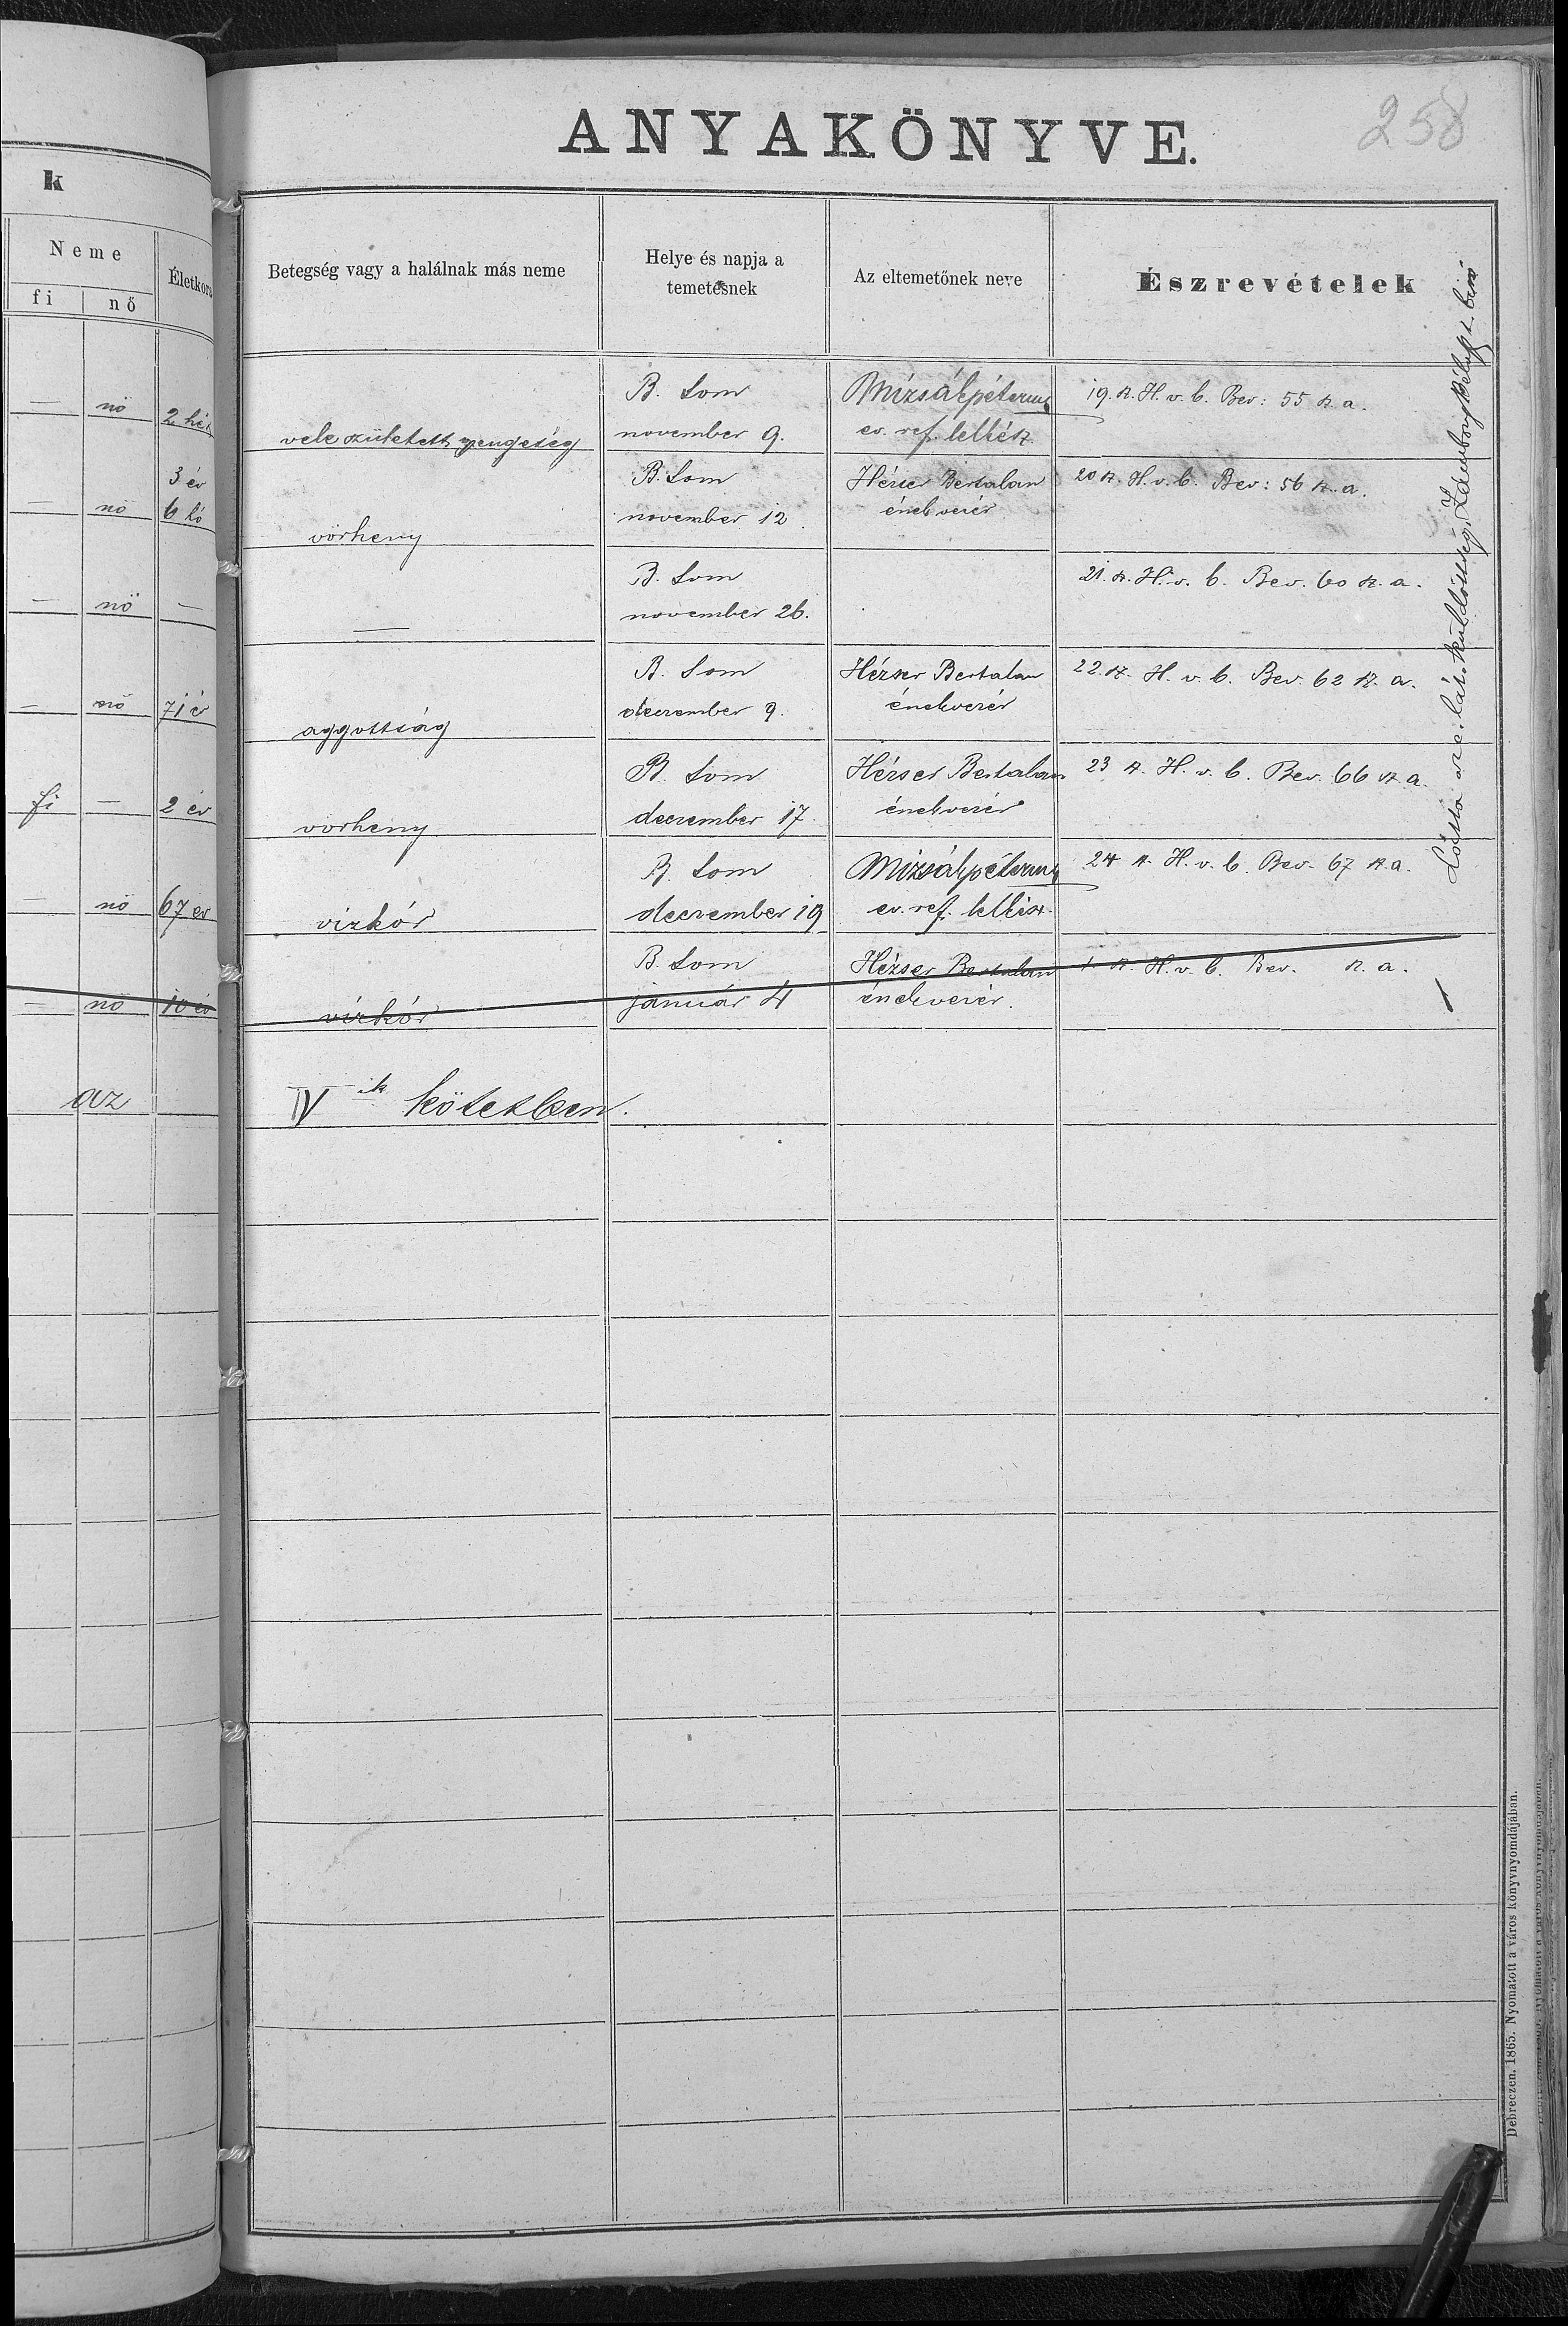 ANYAKÖNYVE.
258
k
Neme
Életkora
fi
nő
Betegség vagy a halálnak más neme
Helye és napja a
temetésnek
Az eltemetőnek neve
Észrevételek
— nő 2 hét
vele született gyengeség
B. Som
november 9.
ev. ref. lelkész
19. sz. H. v. b. Bev: 55 sz. a.
— nő 3 év
6 hó
vörheny
B. Som
november 12.
Hézser Bertalan
énekvezér
20 sz. H. v. b. Bev: 56 sz. a.
— nő —
—
B. Som
november 26.
21. sz. H. v. b. Bev. 60 sz. a.
— nő 71 év
aggottság
B. Som
december 9.
Hézser Bertalan
énekvezér
22. sz. H. v. b. Bev. 62 sz. a.
fi — 2 év
vörheny
B. Som
december 17.
Hézser Bertalan
énekvezér
23 sz. H. v. b. Bev. 66 sz. a.
— nő 67 év
vízkór
B. Som
december 19
ev. ref. lelkész
24 sz. H. v. b. Bev. 67 sz. a.
— nő 10 év
vízkór
B. Som
január 4
Hézser Bertalan
énekvezér.
1. sz. H. v. b. Bev. sz. a.
az
IV ik kötetben.
Debreczen, 1865. Nyomatott a város könyvnyomdájában.